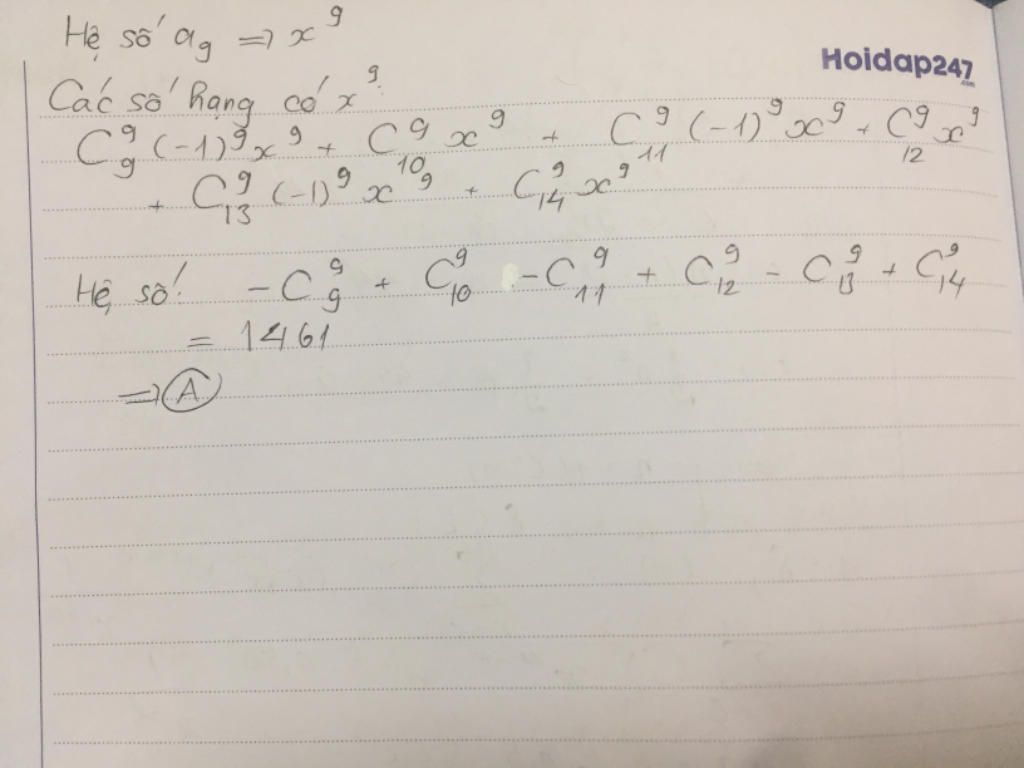 Hệ số a₉ => x⁹
Hoidap247
.com
Các số hạng có x⁹:
C₉⁹(-1)⁹x⁹ + C₁₀⁹x⁹ + C₁₁⁹(-1)⁹x⁹ + C₁₂⁹x⁹
+ C₁₃⁹(-1)⁹x⁹ + C₁₄⁹x⁹
Hệ số: -C₉⁹ + C₁₀⁹ -C₁₁⁹ + C₁₂⁹ - C₁₃⁹ + C₁₄⁹
= 1461
=> A